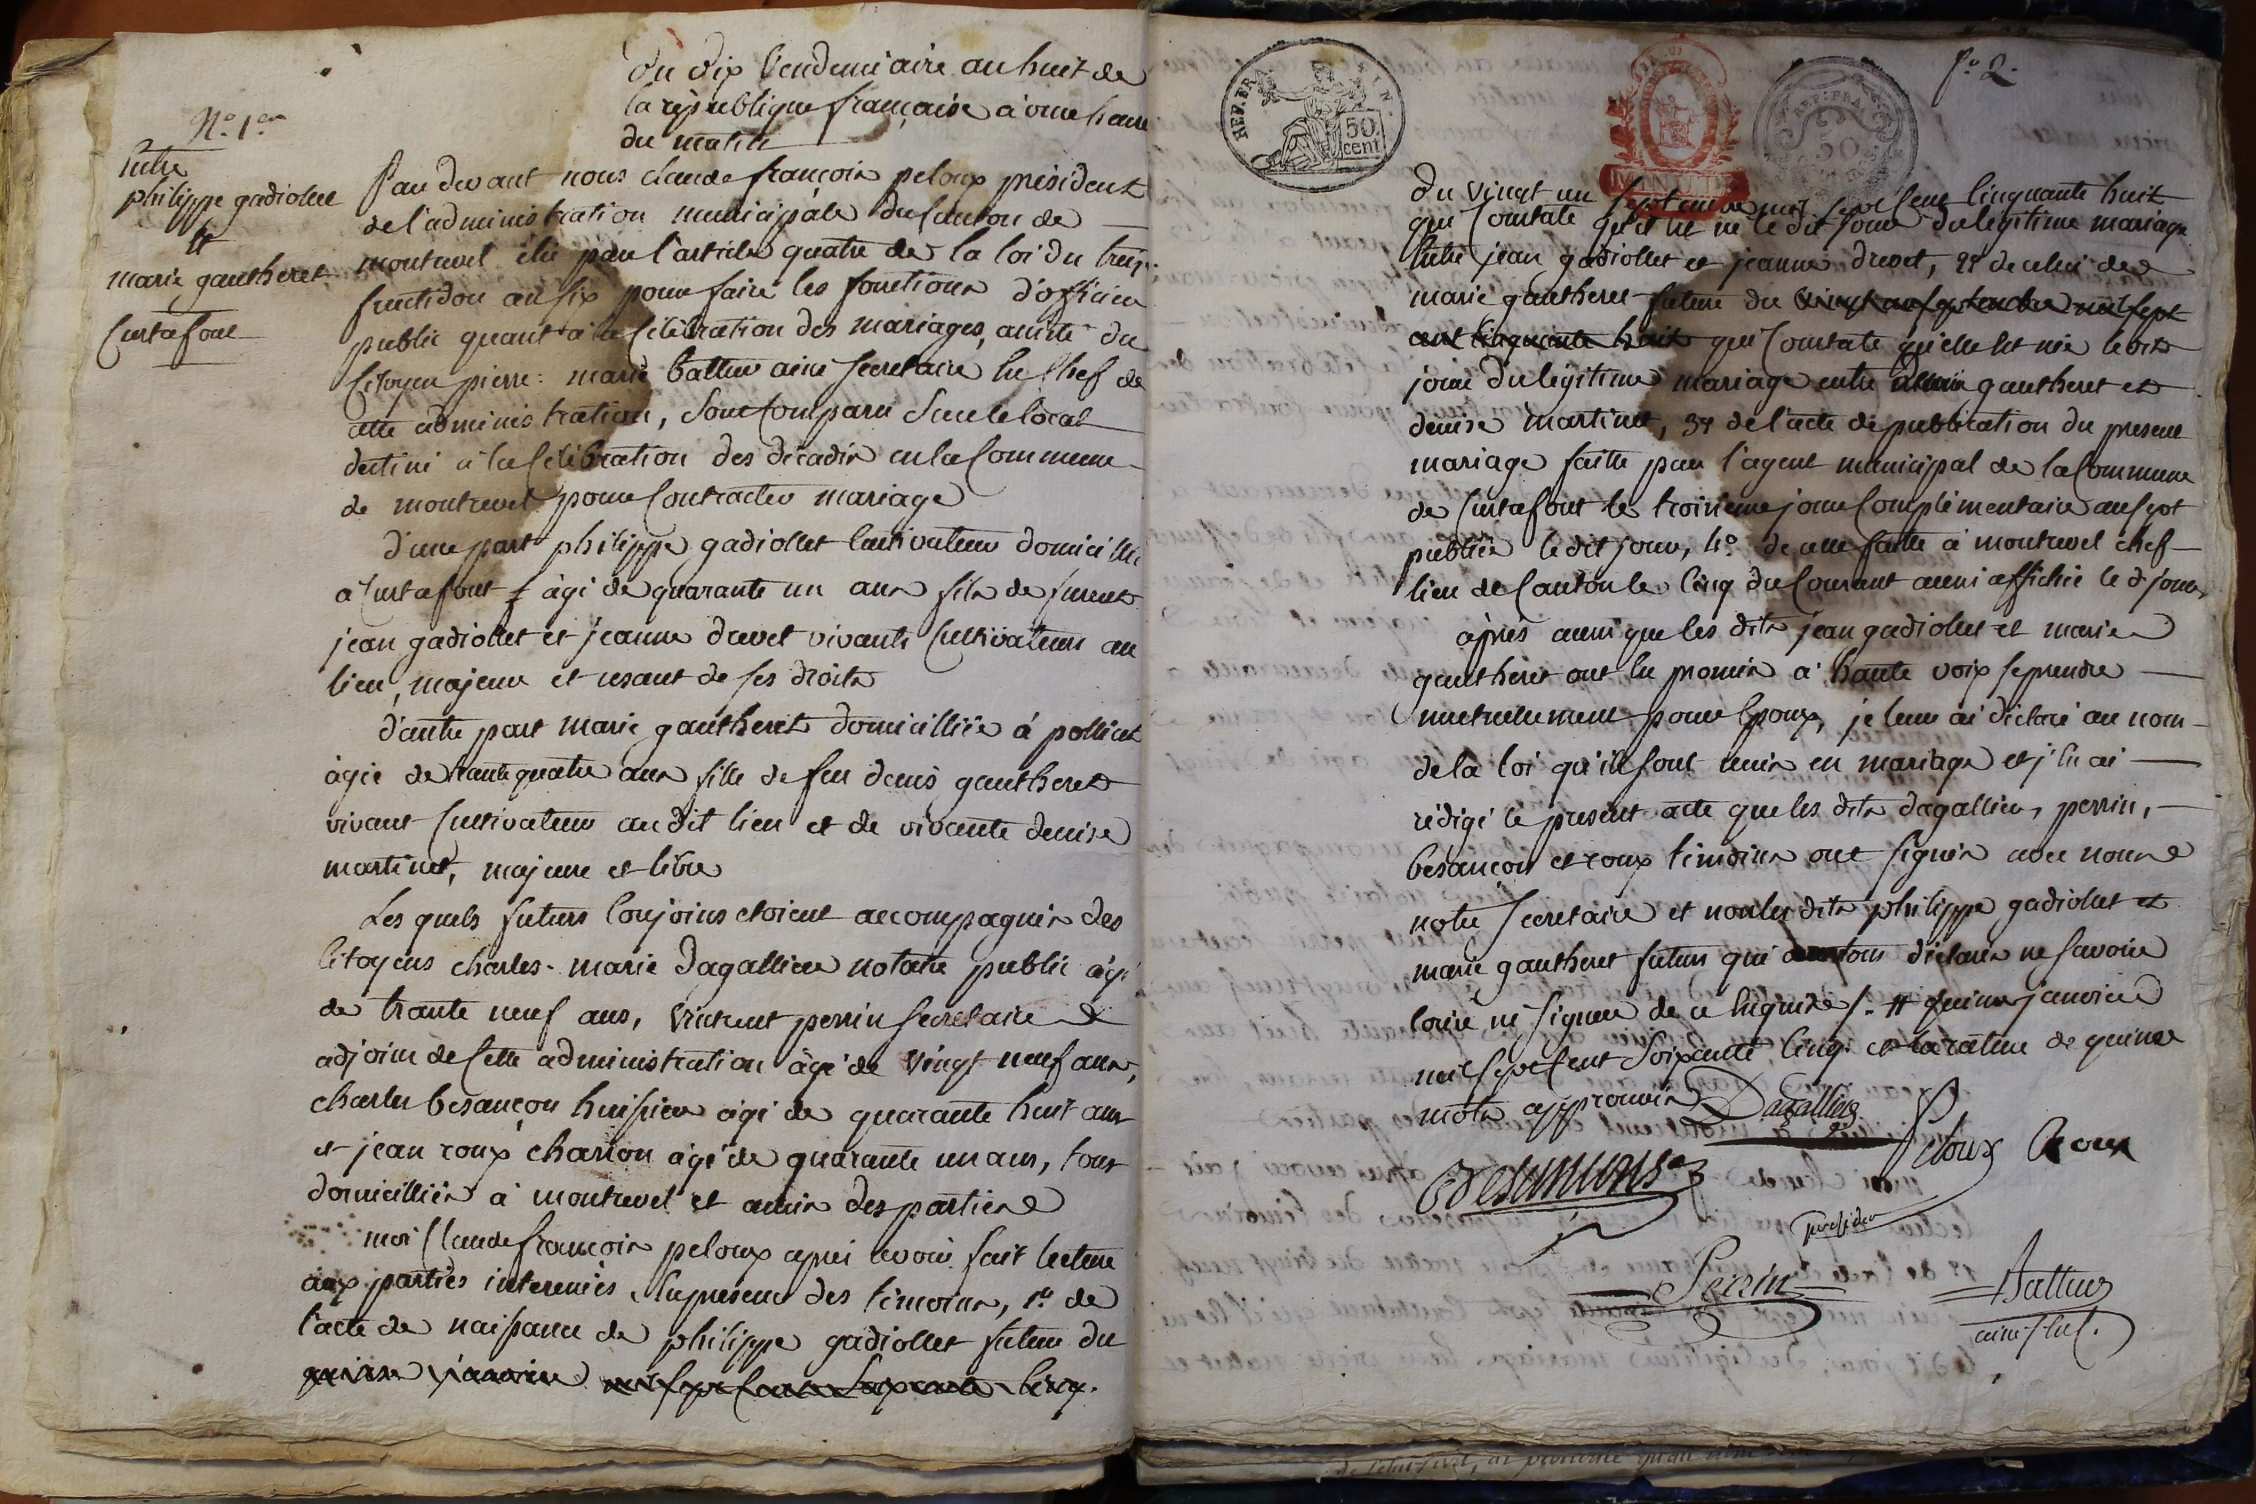 Du dix Vendemiaire an huit de
la république française à onze heure
du matin
N.o 1.er
Entre
philippe gadiollet
et
marie gautheret
Curtafont
Par devant nous claude françois peloux président
de l'administration municipale du Canton de
montrevel élu par l'article quatre de la loi du treize
fructidor an six pour faire les fonctions d'officier
public quant à la Célébration des mariages, assisté du
Citoyen pierre-marie battur ainé secretaire en Chef de
cette administration, sont Comparu sur le local
destiné à la Célébration des décadis en la Commune
de montrevel pour Contracter mariage
d'une part philippe gadiollet Cultivateur domicillié
à Curtafont âgé de quarante un ans fils de furent
jean gadiollet et jeanne drevet vivants Cultivateurs au
lieu, majeur et usant de ses droits
d'autre part marie gautheret domicilliée à polliat
âgée de trante quatre ans fille de feu denis gautheret
vivant Cultivateur au dit lieu et de vivante denise
martinet, majeure et libre
Les quels futurs Conjoins etoient accompagnés des
Citoyens charles-marie dagallier notaire public âgé
de trante neuf ans, vincent perrin secretaire
adjoint de Cette administration âgé de vingt neuf ans,
charles besançon huissier âgé de quarante huit ans
et jean roux charron âgé de quarante un ans, tous
domicilliés à montrevel et amis des parties
moi Claude françois peloux après avoir fait lecture
aux parties interessées en presence des témoins, 1.o de
l'acte de naissance de philippe gadiollet futur du
quinze janvier mil sept cent soixante cinq.
f.o 2.
REP. FRA.
TIMB
50
cent
REP. FRA.
50
du vingt un septembre mil sept Cent Cinquante huit
qui Constate qu'il est né le dit jour du legitime mariage
entre jean gadiollet et jeanne drevet, 2o de celui de
marie gautheret future du vingt un septembre mil sept
cent cinquante huit qui Constate qu'elle est née le dit
jour du legitime mariage entre denis gautheret et
denise martinet, 3o de l'acte de publication du present
mariage faitte par l'agent municipal de la Commune
de Curtafont le troisieme jour Complémentaire an sept
publiée le dit jour, 4o. de celle faitte à montrevel chef-
lieu de Canton le cinq du Courant aussi affichée le d. jour,
après aussi que les dits jean gadiollet et marie
gautheret ont eu promis à haute voix se prendre
mutuellement pour Epoux, je leur ai déclaré au nom
de la loi qu'ils sont unis en mariage et j'en ai
rédigé le present acte que les dits dagallier, perrin,
besançon et roux témoins ont signés avec nous
notre Secretaire et non les dits philippe gadiollet et
marie gautheret futurs qui ont déclarés ne savoir
Ecrire ni signer de ce Enquis /. # quinze janvier
mil sept Cent Soixante Cinq. et la rature de quinze
mots approuvés
Dagallier
Peloux
Roux
Besançons
president
Perrin
Battur
ainé